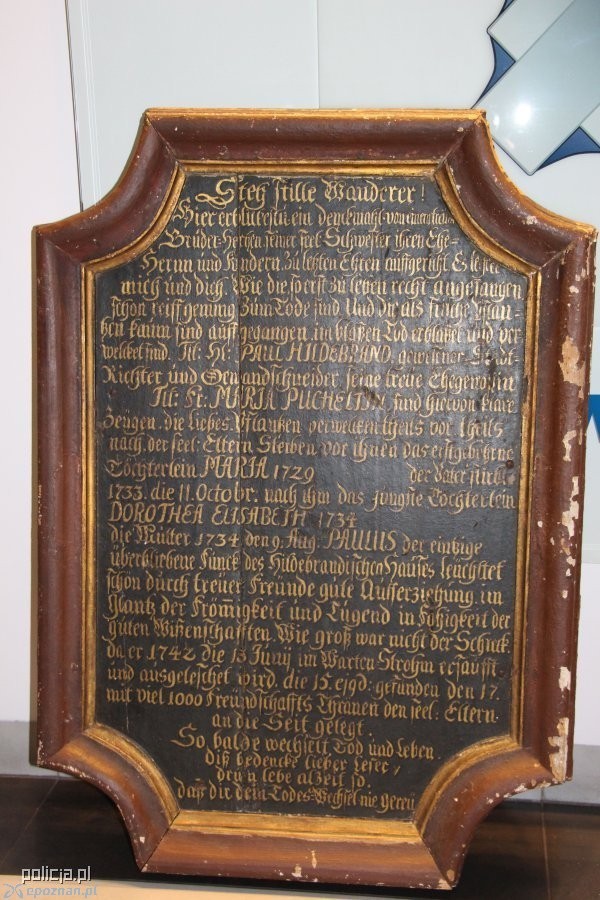 Steh stille Wanderer!
Hier erblickestu ein denckmahl von
Brüder-Hertzen seiner seel. Schwester ihren Ehe-
Herrn und Kindern zu letzten Ehren auffgericht Es lehret
mich und dich, Wie die so erst zu leben recht angefangen
schon reiff genung zum Tode sind Und die als frische Pflan-
zen kaum sind auff gegangen, im blaßen Tod erblaßet und ver
welcket sind. Tit: Hr: PAUL HILDEBRAND, gewesner Stadt
Richter und Gewandschneider, seine treue Ehegenoßin
Tit: Fr: MARIA PUCHELTIN sind hievon klare
Zeugen, die liebes Pflantzen verwelcken theils vor theils
nach, der seel: Eltern Sterben, vor ihnen das erstgebohrne
Töchterlein MARIA 1729 der Vater stirbt
1733. die 11. Octobr. nach ihm das jüngste Töchterlein
DOROTHEA ELISABETH 1734
die Mütter 1734 den 9. Aug: PAULUS der eintzige
überbliebene Funck des Hildebrandischen Hauses leuchtet
schon durch treuer Freunde gute Aufferziehung im
Glantz der Frömigkeit und Tugend in Fähigkeit der
guten Wißenschafften, Wie groß war nicht der Schreck
da er 1742 die 13 Junÿ im Warten Strohm ersäufft
und ausgeleschet wird, die 15. ejqd: gefunden den 17.
mit viel 1000 Freundschaffts Thränen den seel: Eltern
an die Seit gelegt
So balde wechselt Tod und leben
Diß bedencke lieber Leser,
drum lebe alzeit so
Daß dir dein Todes-Wechsel nie gereu
policja.pl
epoznan.pl